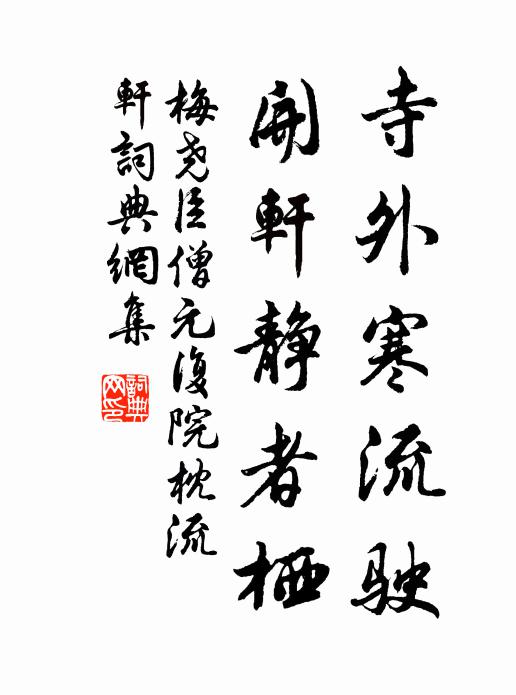 寺外寒流駛
開軒靜者栖
梅尧臣僧元復院枕流
軒詞典網集
詞典网印